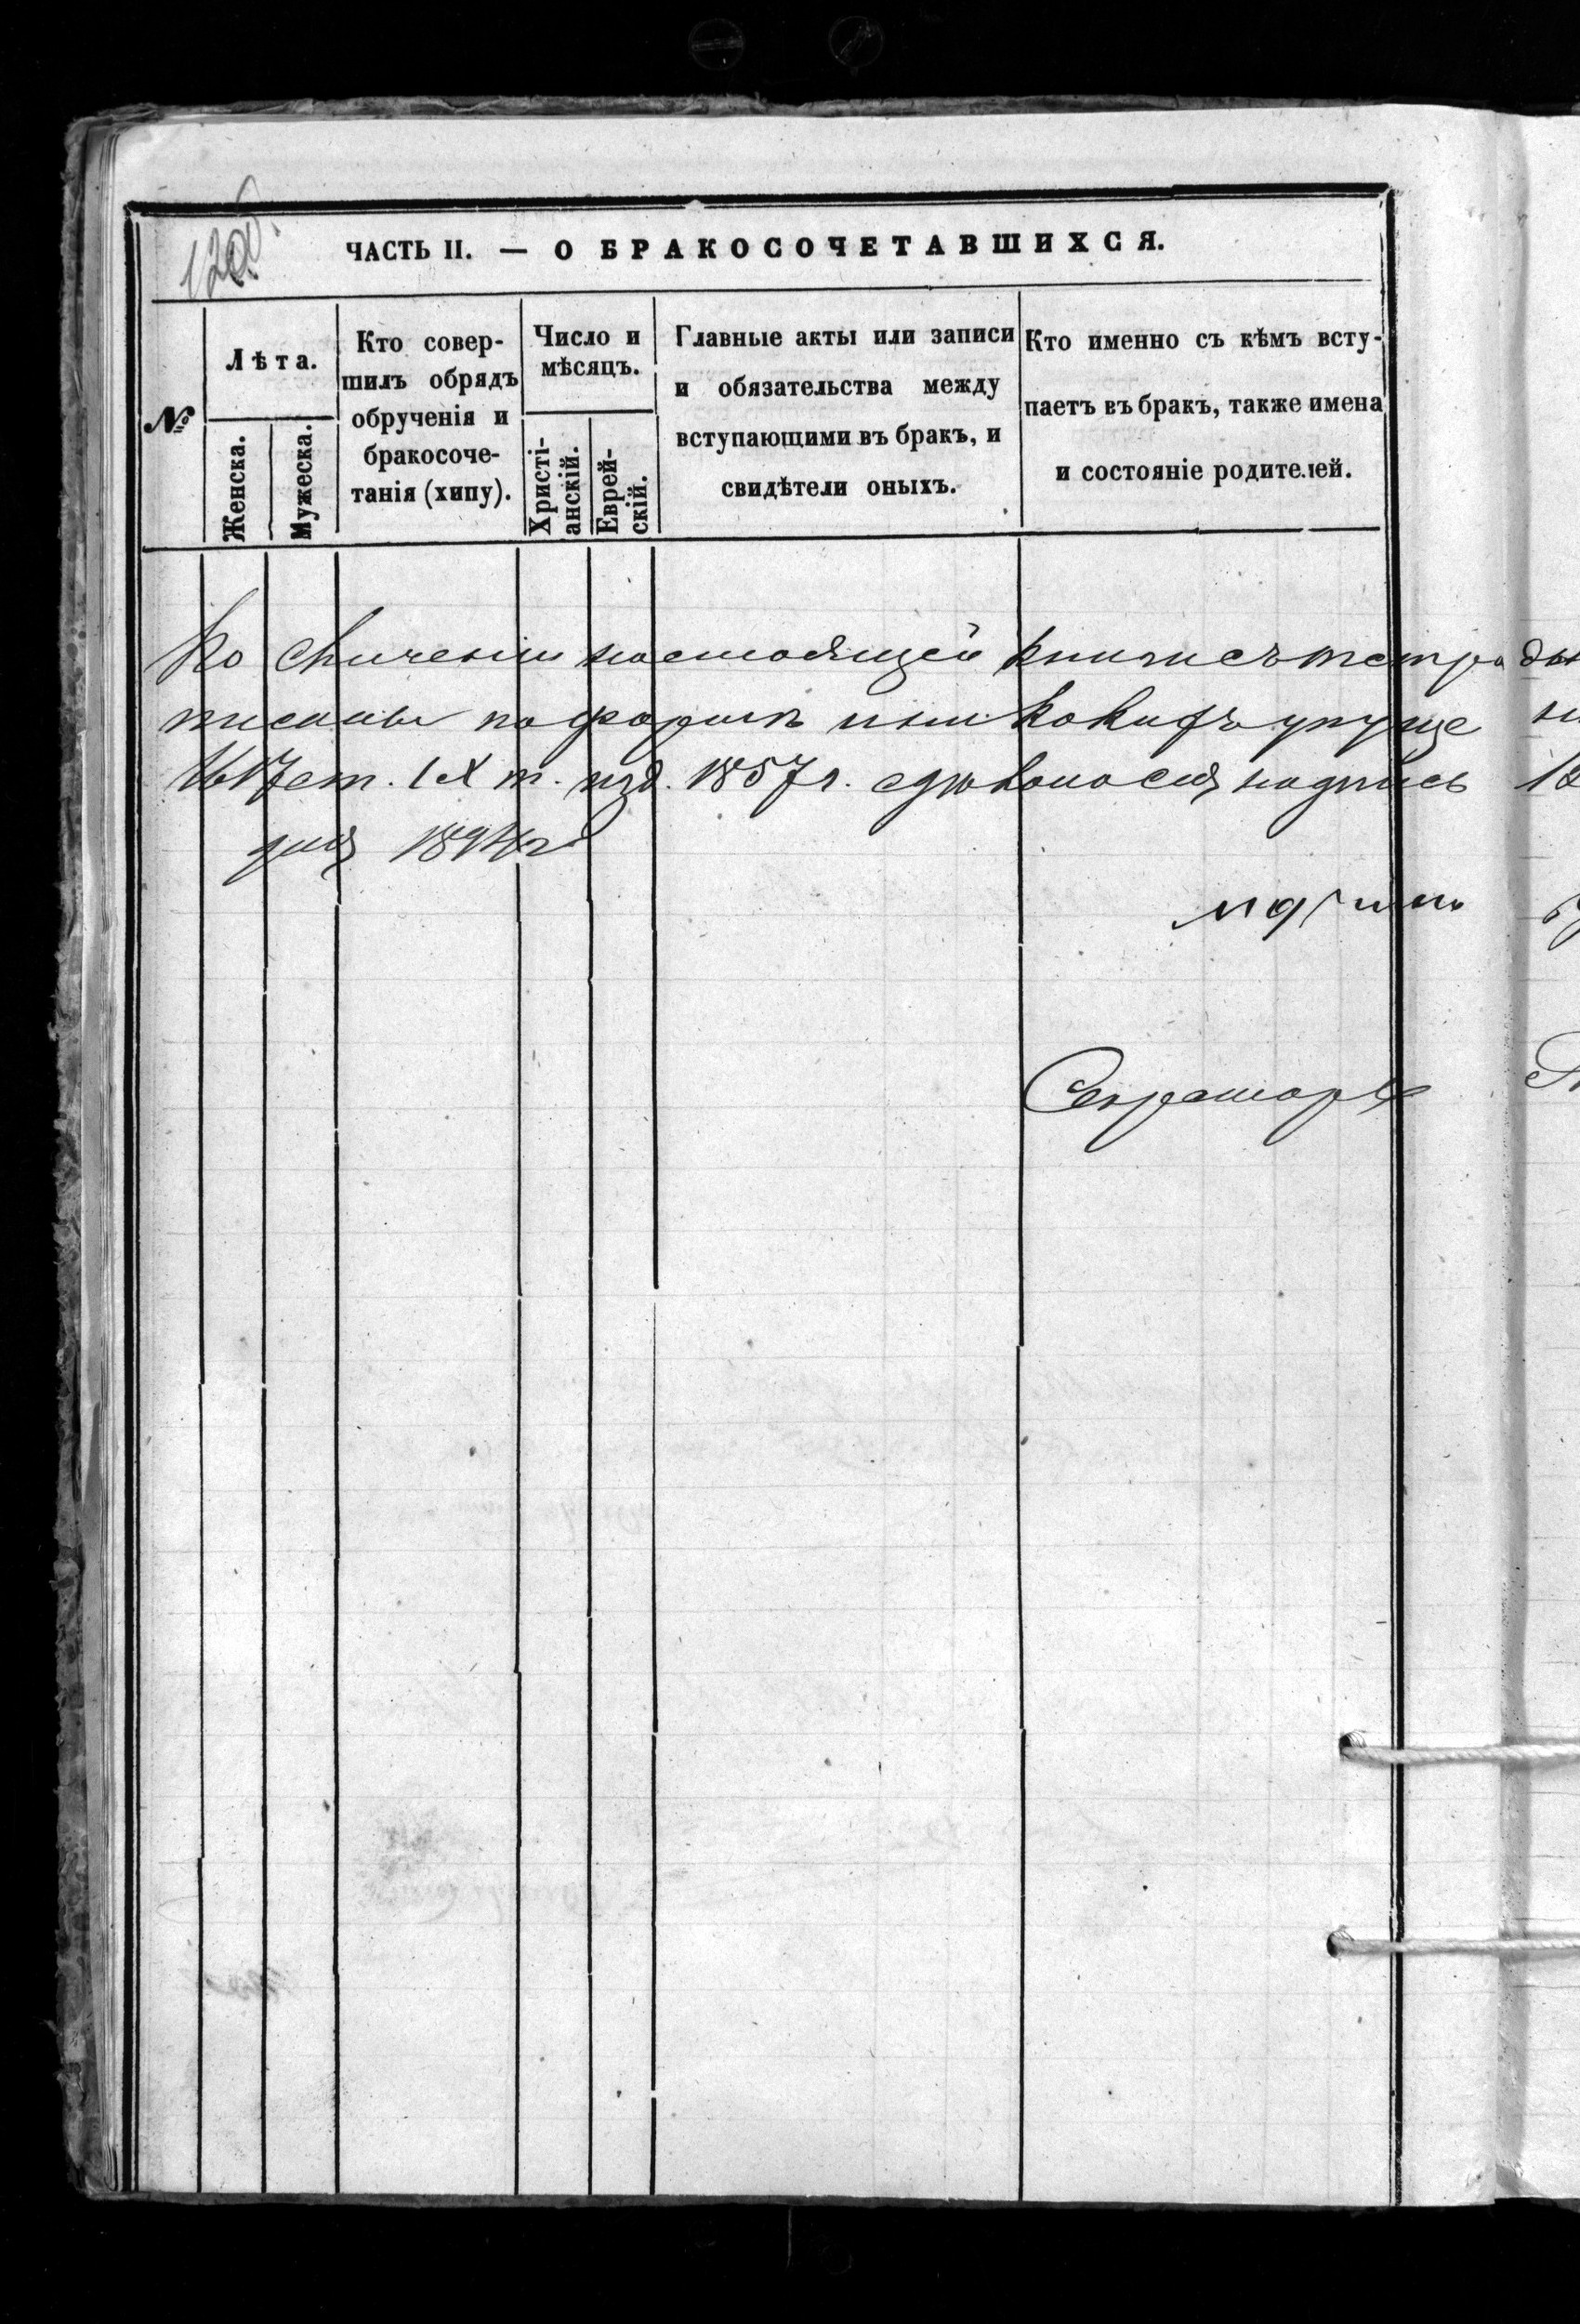 ЧАСТЬ II. — О БРАКОСОЧЕТАВШИХСЯ.
№
Лѣта.
Женска.
Мужеска.
Кто совер-
шилъ обрядъ
обрученія и
бракосоче-
танія (хипу).
Число и
мѣсяцъ.
Христі-
анскій.
Еврей-
скій.
Главные акты или записи
и обязательства между
вступающими въ бракъ, и
свидѣтели оныхъ.
Кто именно съ кѣмъ всту-
паетъ въ бракъ, также имена
и состояніе родителей.
По сличеніи настоящей книги съ тетра
писаны по формѣ никакихъ упуще
ст. IX т. изд. 1857 г. надпись
дня
Секретарь